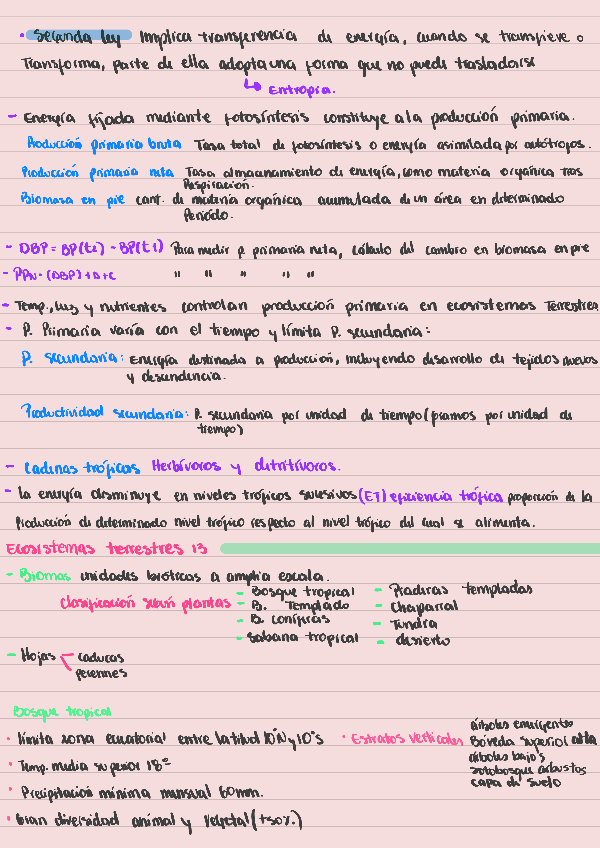 • Segunda ley Implica transferencia de energía, cuando se transfiere o
Transforma, parte de ella adopta una forma que no puede trasladarse
↳ Entropía.
- Energía fijada mediante fotosíntesis constituye a la producción primaria.
Producción primaria bruta Tasa total de fotosíntesis o energía asimilada por autótrofos.
Producción primaria neta Tasa almacenamiento de energía, como materia orgánica tras
Respiración.
Biomasa en pie cant. de materia orgánica acumulada de un área en determinado
Período.
- DBP = BP(t2) - BP(t1) Para medir p. primaria neta, cálculo del cambio en biomasa en pie
- PPN = (DBP) + D + C " " " " "
- Temp., luz y nutrientes controlan producción primaria en ecosistemas Terrestres
- P. Primaria varía con el tiempo y limita P. secundaria:
P. secundaria: Energía destinada a producción, incluyendo desarrollo de tejidos nuevos
y descendencia.
Productividad secundaria: P. secundaria por unidad de tiempo (gramos por unidad de
tiempo)
- Cadenas tróficas Herbívoros y detritívoros.
- la energía disminuye en niveles tróficos sucesivos (ET) eficiencia trófica proporción de la
Producción de determinado nivel trófico respecto al nivel trófico del cual se alimenta.
Ecosistemas terrestres 13
- Biomas unidades bióticas a amplia escala.
Clasificación según plantas
- Bosque tropical - Praderas templadas
- B. Templado - Chaparral
- B. coníferas - Tundra
- Sabana tropical - desierto
- Hojas caducas
perennes
Bosque tropical
• limita zona ecuatorial entre latitud 10°N y 10°S
• Temp. media superior 18°
• Precipitación mínima mensual 60mm.
• Gran diversidad animal y vegetal (+50%)
• Estratos verticales
árboles emergentes
Bóveda superior alta
árboles bajos
sotobosque arbustos
capa de suelo